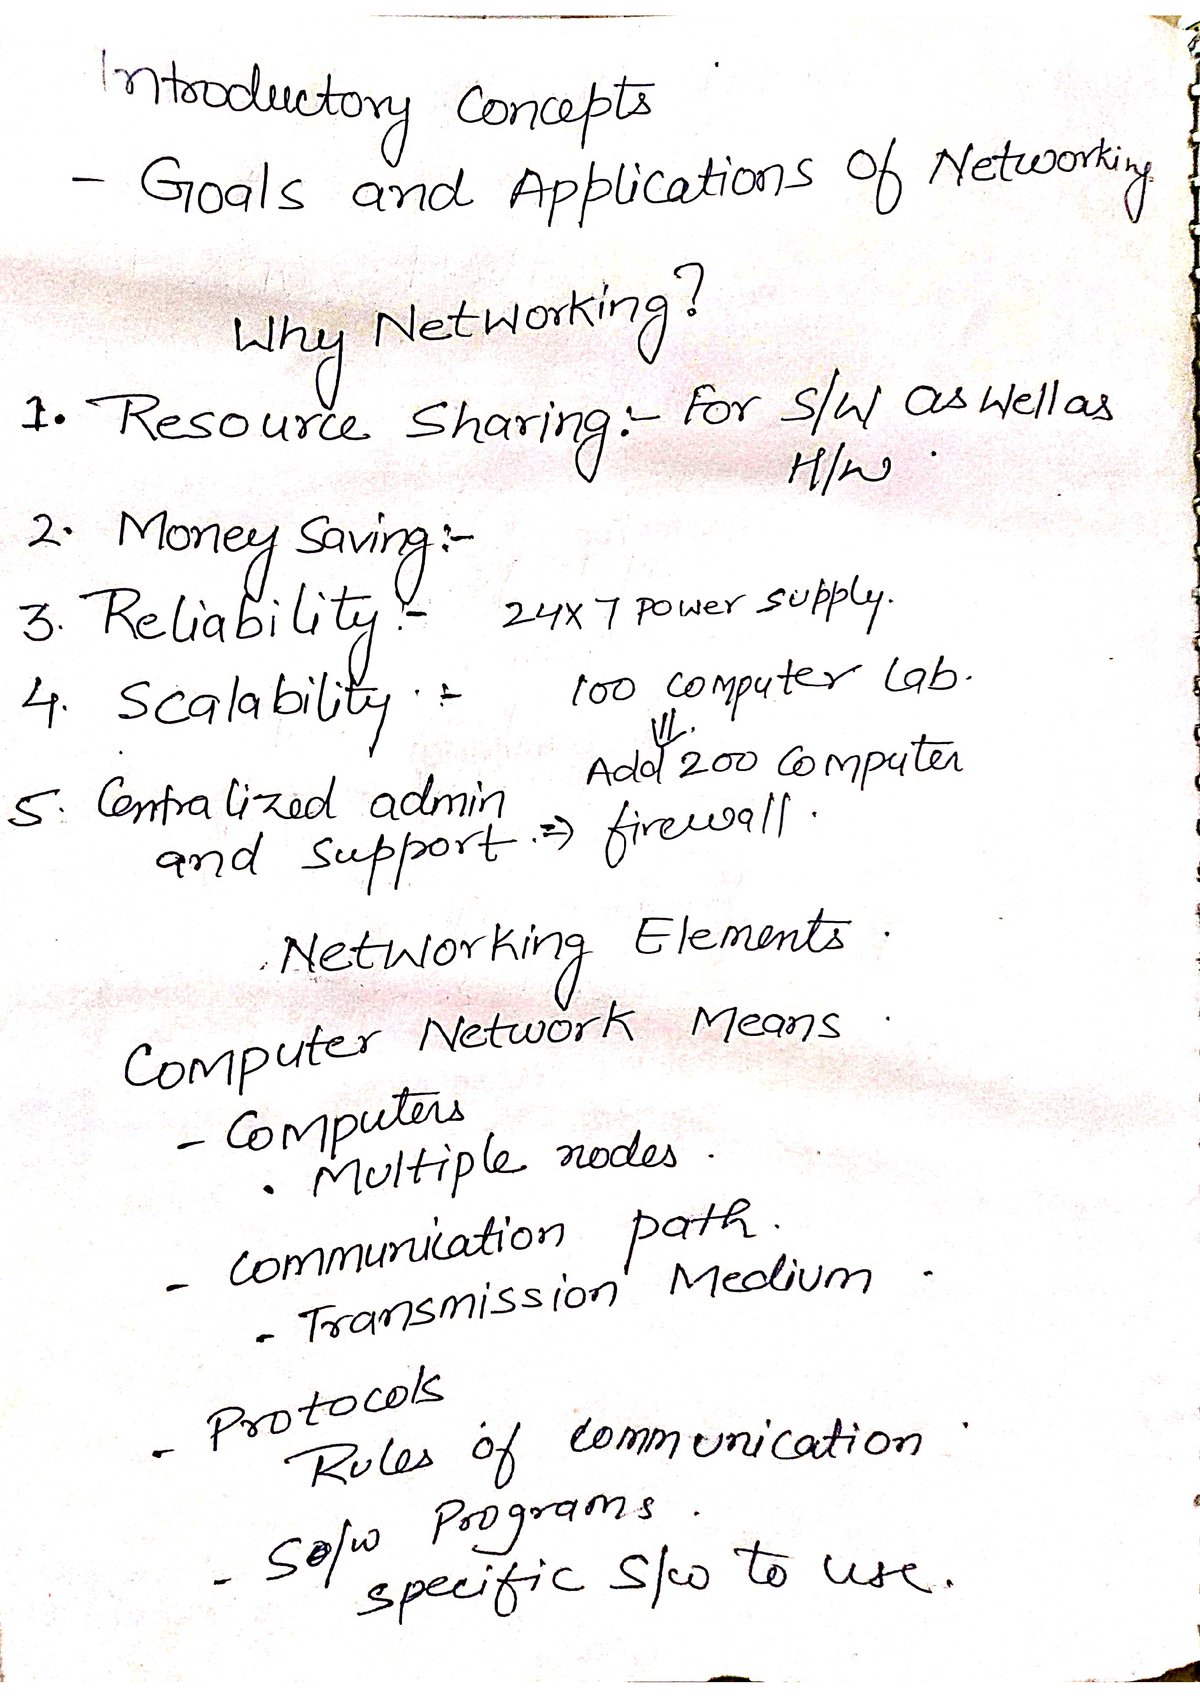 Introductory Concepts
- Goals and Applications of Networking
Why Networking?
1. Resource Sharing:- For S/W as well as
H/W.
2. Money Saving:-
3. Reliability:- 24x7 power supply.
4. Scalability:- 100 computer lab.
⇓
Add 200 Computer
5. Centralized admin
and support. ⇒ firewall.
Networking Elements.
Computer Network Means.
- Computers
. Multiple nodes.
- Communication path.
- Transmission Medium.
- Protocols
Rules of communication.
- So/w Programs.
specific S/w to use.